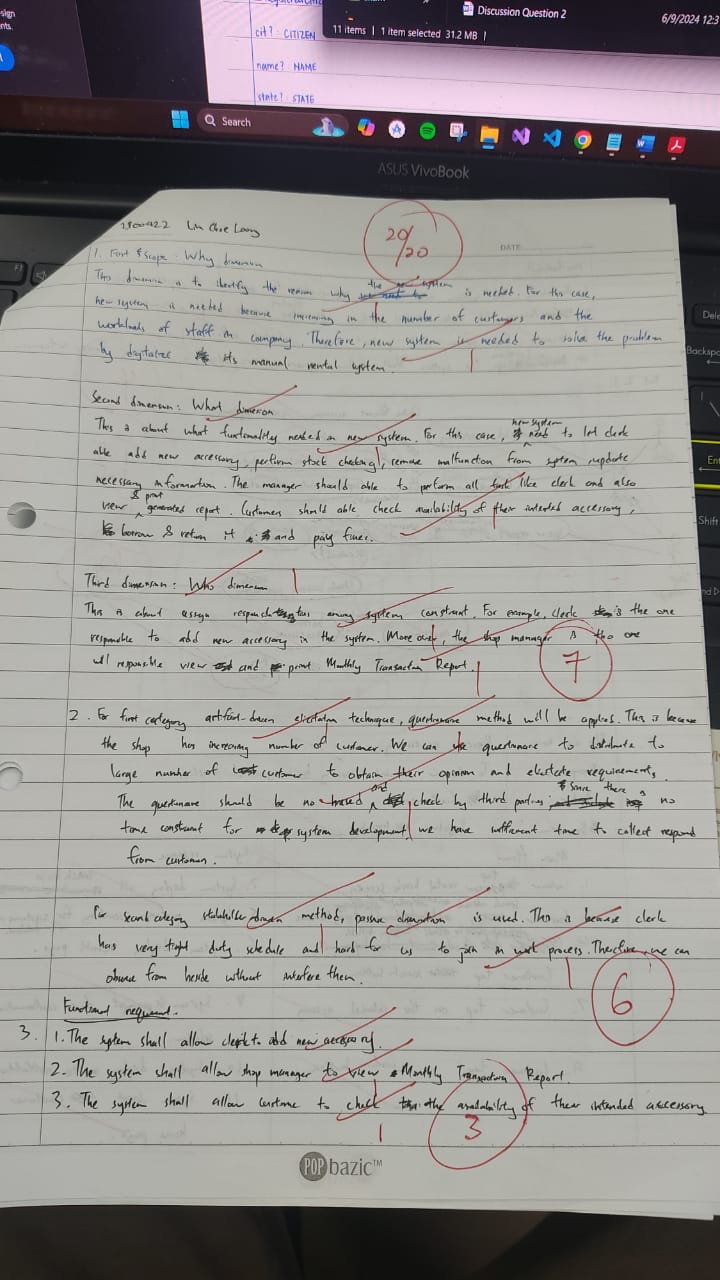 sign
nts.
cit? : CITIZEN
name? : NAME
state? : STATE
Discussion Question 2
11 items | 1 item selected 31.2 MB |
6/9/2024 12:3
Search
ASUS VivoBook
20/20
DATE
1. First Scope : Why dimension
This dimension is to identify the reason why the new system is needed. For this case,
new system is needed because increasing in the number of customers and the
workloads of staff in company. Therefore, new system is needed to solve the problem
by digitalize its manual rental system.
Second dimension : What dimension
This is about what functionality needed in new system. For this case, new system need to let clerk
able add new accessory, perform stock checking, remove malfunction from system, update
necessary information. The manager should able to perform all task like clerk and also
view & print generated report. Customers should able check availability of their intended accessory,
borrow & return it and pay fines.
Third dimension : Who dimension
This is about assign among system constraint. For example, clerk is the one
responsible to add new accessory in the system. More over, the shop manager is the one
will responsible view and print Monthly Transaction Report.
7
2. For first category artifact-driven elicitation technique, questionnaire method will be applied. This is because
the shop has increasing number of customer. We can use questionnaire to distribute to
large number of customer to obtain their opinion and requirements.
The should be no and check by third parties. Since there is no
time constraint for system development, we have sufficient time to collect respond
from customer.
For second category stakeholder driven method, passive observation is used. This is because clerk
has very tight duty schedule and hard for us to join in work process. Therefore, we can
from without interfere them.
6
Functional
3. 1. The system shall allow clerk to add new accessory.
2. The system shall allow shop manager to view Monthly Transaction Report.
3. The system shall allow to check the availability of their intended accessory
3
POP bazic™
Dele
Backspa
Ent
Shift